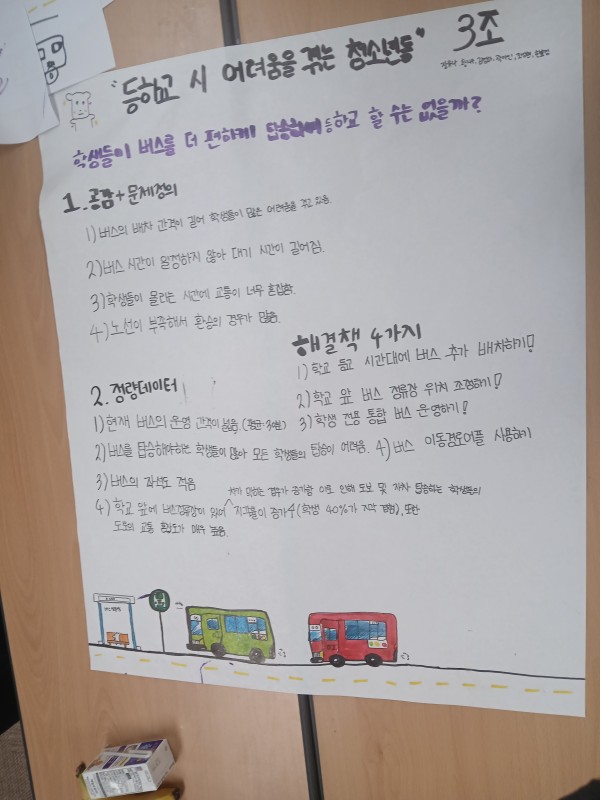 "등하교 시 어려움을 겪는 청소년들"
3조
학생들이 버스를 더 편하게 탑승하여 등하교 할 수는 없을까?
1. 공감 + 문제정의
1) 버스의 배차 간격이 길어 학생들이 많은 어려움을 겪고 있음.
2) 버스 시간이 일정하지 않아 대기 시간이 길어짐.
3) 학생들이 몰리는 시간에 교통이 너무 혼잡함.
4) 노선이 부족해서 환승의 경우가 많음.
해결책 4가지
1) 학교 등교 시간대에 버스 추가 배치하기!
2) 학교 앞 버스 정류장 위치 조정하기!
3) 학생 전용 통합 버스 운영하기!
4) 버스 이동경로어플 사용하기
2. 정량데이터
1) 현재 버스의 운영 간격이 넓음. (평균
2) 버스를 탑승해야하는 학생들이 많아 모든 학생들의 탑승이 어려움.
3) 버스의 좌석도 적음
4) 학교 앞에 버스정류장이 있어 차가 막히는 경우가 증가함 이로 인해 도보 및 자차 탑승하는 학생들의
지각률이 증가 (학생 40%가 지각 경험), 또한
도보의 교통 혼잡도가 매우 높음.